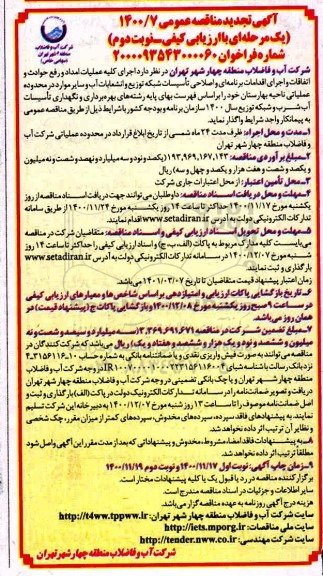 آگهی تجدید مناقصه عمومی ۱۴۰۰/۷
(یک مرحله‌ای با ارزیابی کیفی - نوبت دوم)
شماره فراخوان ۲۰۰۰۰۹۳۵۶۳۰۰۰۰۶۰
شرکت آب و فاضلاب
منطقه ۴ شهر تهران
(سهامی خاص)
شرکت آب و فاضلاب منطقه چهار شهر تهران در نظر دارد اجرای کلیه عملیات امداد و رفع حوادث و
اتفاقات و اجرای اقدامات برنامه‌ای و اصلاحی تأسیسات شبکه توزیع و انشعابات آب و سایر موارد در محدوده
عملیاتی ناحیه بهارستان خود را بر اساس فهرست بهای پایه رشته‌های بهره‌برداری و نگهداری تأسیسات
آب شرب و شبکه توزیع سال ۱۴۰۰ سازمان برنامه و بودجه کشور با شرایط ذیل از طریق مناقصه عمومی
به پیمانکار واجد شرایط واگذار نماید.
۱ـ مدت و محل اجراء: ظرف مدت ۲۴ ماه شمسی از تاریخ ابلاغ قرارداد در محدوده عملیاتی شرکت آب و
فاضلاب منطقه چهار شهر تهران
۲ـ مبلغ برآوردی مناقصه: ۱۹۳,۹۶۹,۱۶۷,۱۴۳ (یکصد و نود و سه میلیارد و نهصد و شصت و نه میلیون
و یکصد و شصت و هفت هزار و یکصد و چهل و سه) ریال
۳ـ محل تأمین اعتبار: از محل اعتبارات جاری شرکت
۴ـ مهلت و محل دریافت اسناد مناقصه: داوطلبان می‌توانند جهت دریافت اسناد مناقصه از روز
یکشنبه مورخ ۱۴۰۰/۱۱/۱۷ حداکثر تا ساعت ۱۴ روز یکشنبه مورخ ۱۴۰۰/۱۱/۲۴ از طریق سامانه
تدارکات الکترونیکی دولت به آدرس www.setadiran.ir اقدام نمایند.
۵ـ مهلت و محل تحویل اسناد ارزیابی کیفی و اسناد مناقصه: متقاضیان شرکت در مناقصه
می‌بایست کلیه مدارک مربوط به پاکات (الف، ب، ج) و اسناد ارزیابی کیفی را حداکثر تا ساعت ۱۴ روز
شنبه مورخ ۱۴۰۰/۱۲/۰۷ در سامانه تدارکات الکترونیکی دولت به آدرس www.setadiran.ir
بارگذاری و ثبت نمایند.
زمان اعتبار پیشنهاد قیمت متقاضیان تا تاریخ ۱۴۰۱/۰۳/۰۷ می‌باشد.
۶ـ تاریخ بازگشایی پاکات ارزیابی و امتیازدهی بر اساس شاخص‌ها و معیارهای ارزیابی کیفی
در ساعت ۹ صبح روز یکشنبه مورخ ۱۴۰۰/۱۲/۰۸ و بازگشایی پاکات ج (پیشنهاد قیمت) در
همان روز می‌باشد.
۷ـ مبلغ تضمین شرکت در مناقصه ۳,۳۶۹,۶۹۱,۶۷۱ (سه میلیارد و سیصد و شصت و نه
میلیون و ششصد و نود و یک هزار و ششصد و هفتاد و یک) ریال می‌باشد که شرکت کنندگان در
مناقصه می‌توانند به صورت فیش واریزی نقدی و یا ضمانتنامه بانکی به شماره حساب
نزد بانک رسالت با شناسه شبای در وجه شرکت آب و فاضلاب
منطقه چهار شهر تهران و یا چک بانکی تضمینی در وجه شرکت آب و فاضلاب منطقه چهار شهر تهران
دریافت و تصویر ضمانتنامه را در سامانه تدارکات الکترونیک دولت در پاکت (الف) بارگذاری و ثبت و
اصل ضمانتنامه موصوف را تا ساعت ۱۳ روز شنبه مورخ ۱۴۰۰/۱۲/۰۷ به دبیرخانه این شرکت تسلیم
نمایند. به پیشنهادهای فاقد سپرده، سپرده‌های مخدوش، سپرده‌های کمتر از میزان مقرر، چک شخصی
و نظایر آن ترتیب اثر داده نخواهد شد.
۸ـ به پیشنهادات فاقد امضا، مشروط، مخدوش و پیشنهاداتی که بعد از مدت مقرر این آگهی واصل شود
مطلقاً ترتیب اثر داده نخواهد شد.
۹ـ زمان چاپ آگهی: نوبت اول ۱۴۰۰/۱۱/۱۷ و نوبت دوم ۱۴۰۰/۱۱/۱۹
برگزار کننده مناقصه در رد یا قبول یک یا کلیه پیشنهادات مختار است.
سایر اطلاعات و جزئیات در اسناد مناقصه مندرج است.
هزینه درج آگهی روزنامه به عهده مناقصه گزار می‌باشد.
سایت شرکت آب و فاضلاب منطقه چهار شهر تهران: http://t4ww.tppww.ir
سایت ملی مناقصات: http://iets.mporg.ir
سایت شرکت مهندسی: http://tender.nww.co.ir
شرکت آب و فاضلاب منطقه چهار شهر تهران